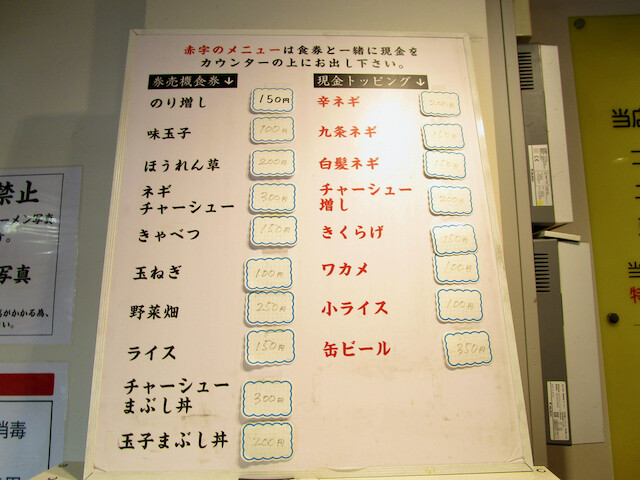 赤字のメニューは食券と一緒に現金を
カウンターの上にお出し下さい。
券売機食券↓
のり増し 150円
味玉子 100円
ほうれん草 200円
ネギ
チャーシュー 300円
きゃべつ 150円
玉ねぎ 100円
野菜畑 250円
ライス 150円
チャーシュー
まぶし丼 300円
玉子まぶし丼 200円
現金トッピング↓
辛ネギ 200円
九条ネギ 150円
白髪ネギ 150円
チャーシュー
増し 200円
きくらげ 150円
ワカメ 100円
小ライス 100円
缶ビール 350円
禁止
ーメン写真
す。
写真
がかかる為、
い。
消毒
当店
当
特